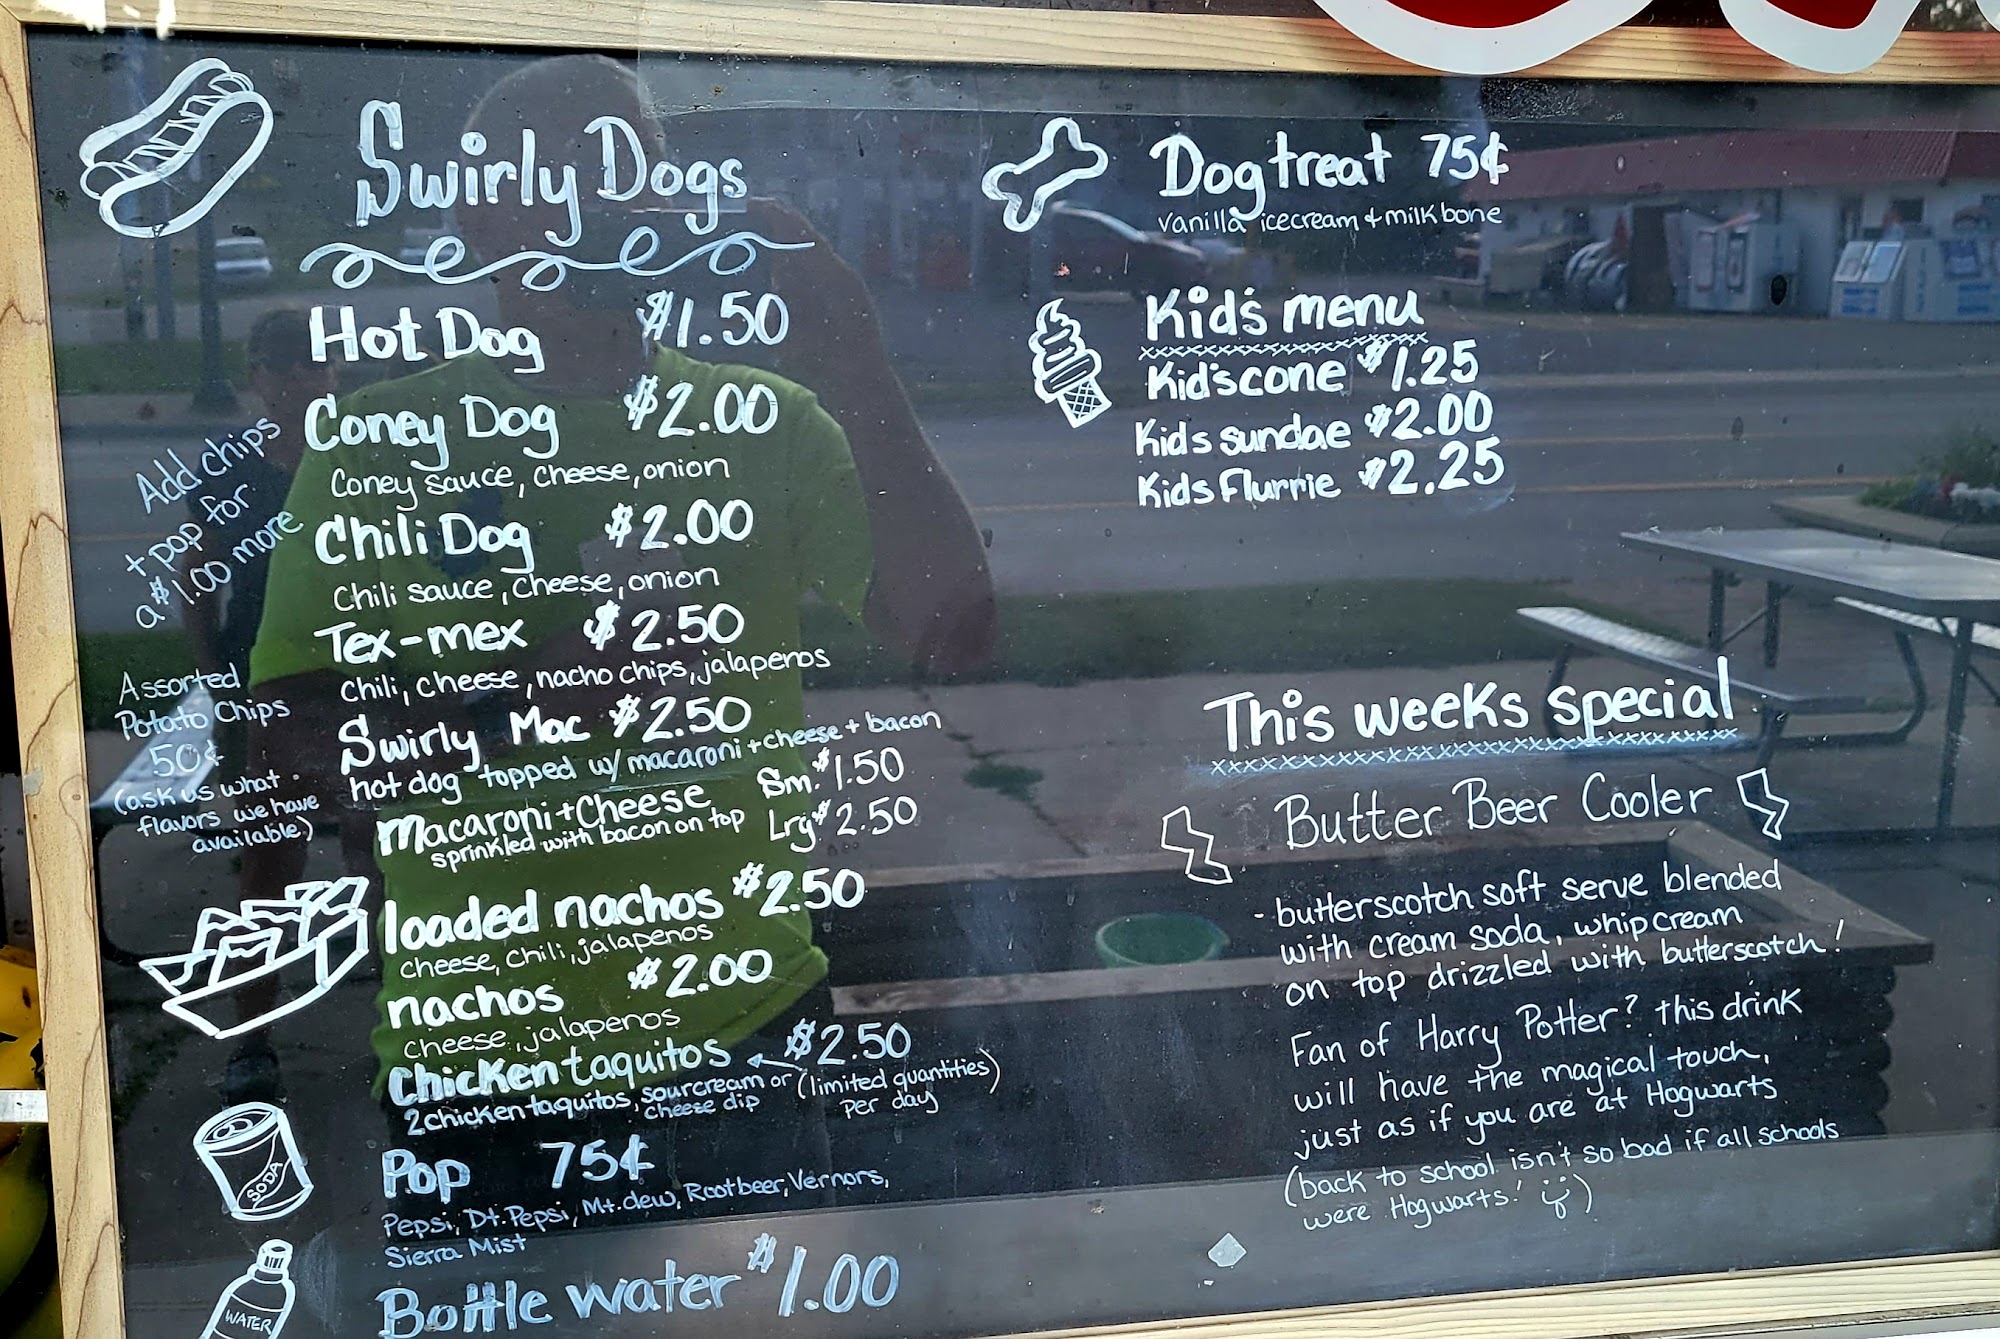 Swirly Dogs
Hot Dog $1.50
Coney Dog $2.00
Coney sauce, cheese, onion
Chili Dog $2.00
Chili sauce, cheese, onion
Tex-mex $2.50
Chili, cheese, nacho chips, jalapenos
Swirly Mac $2.50
hot dog topped w/ macaroni + cheese + bacon
Macaroni + Cheese Sm. $1.50
sprinkled with bacon on top Lrg $2.50
loaded nachos $2.50
cheese, chili, jalapenos
nachos $2.00
cheese, jalapenos
Chicken taquitos $2.50
2 chicken taquitos, sourcream or
cheese dip
(limited quantities)
per day
Pop 75¢
Pepsi, Dt. Pepsi, Mt. dew, Rootbeer, Vernors,
Sierra Mist
Bottle water $1.00
Add chips
+ pop for
a $1.00 more
Assorted
Potato Chips
50¢
(ask us what
flavors we have
available.)
SODA
WATER
Dog treat 75¢
vanilla icecream + milkbone
Kid's menu
Kid's cone $1.25
Kids sundae $2.00
Kids Flurrie $2.25
This weeks special
Butter Beer Cooler
- butterscotch soft serve blended
with cream soda, whip cream
on top drizzled with butterscotch!
Fan of Harry Potter? this drink
will have the magical touch,
just as if you are at Hogwarts
(back to school isn't so bad if all schools
were Hogwarts!)